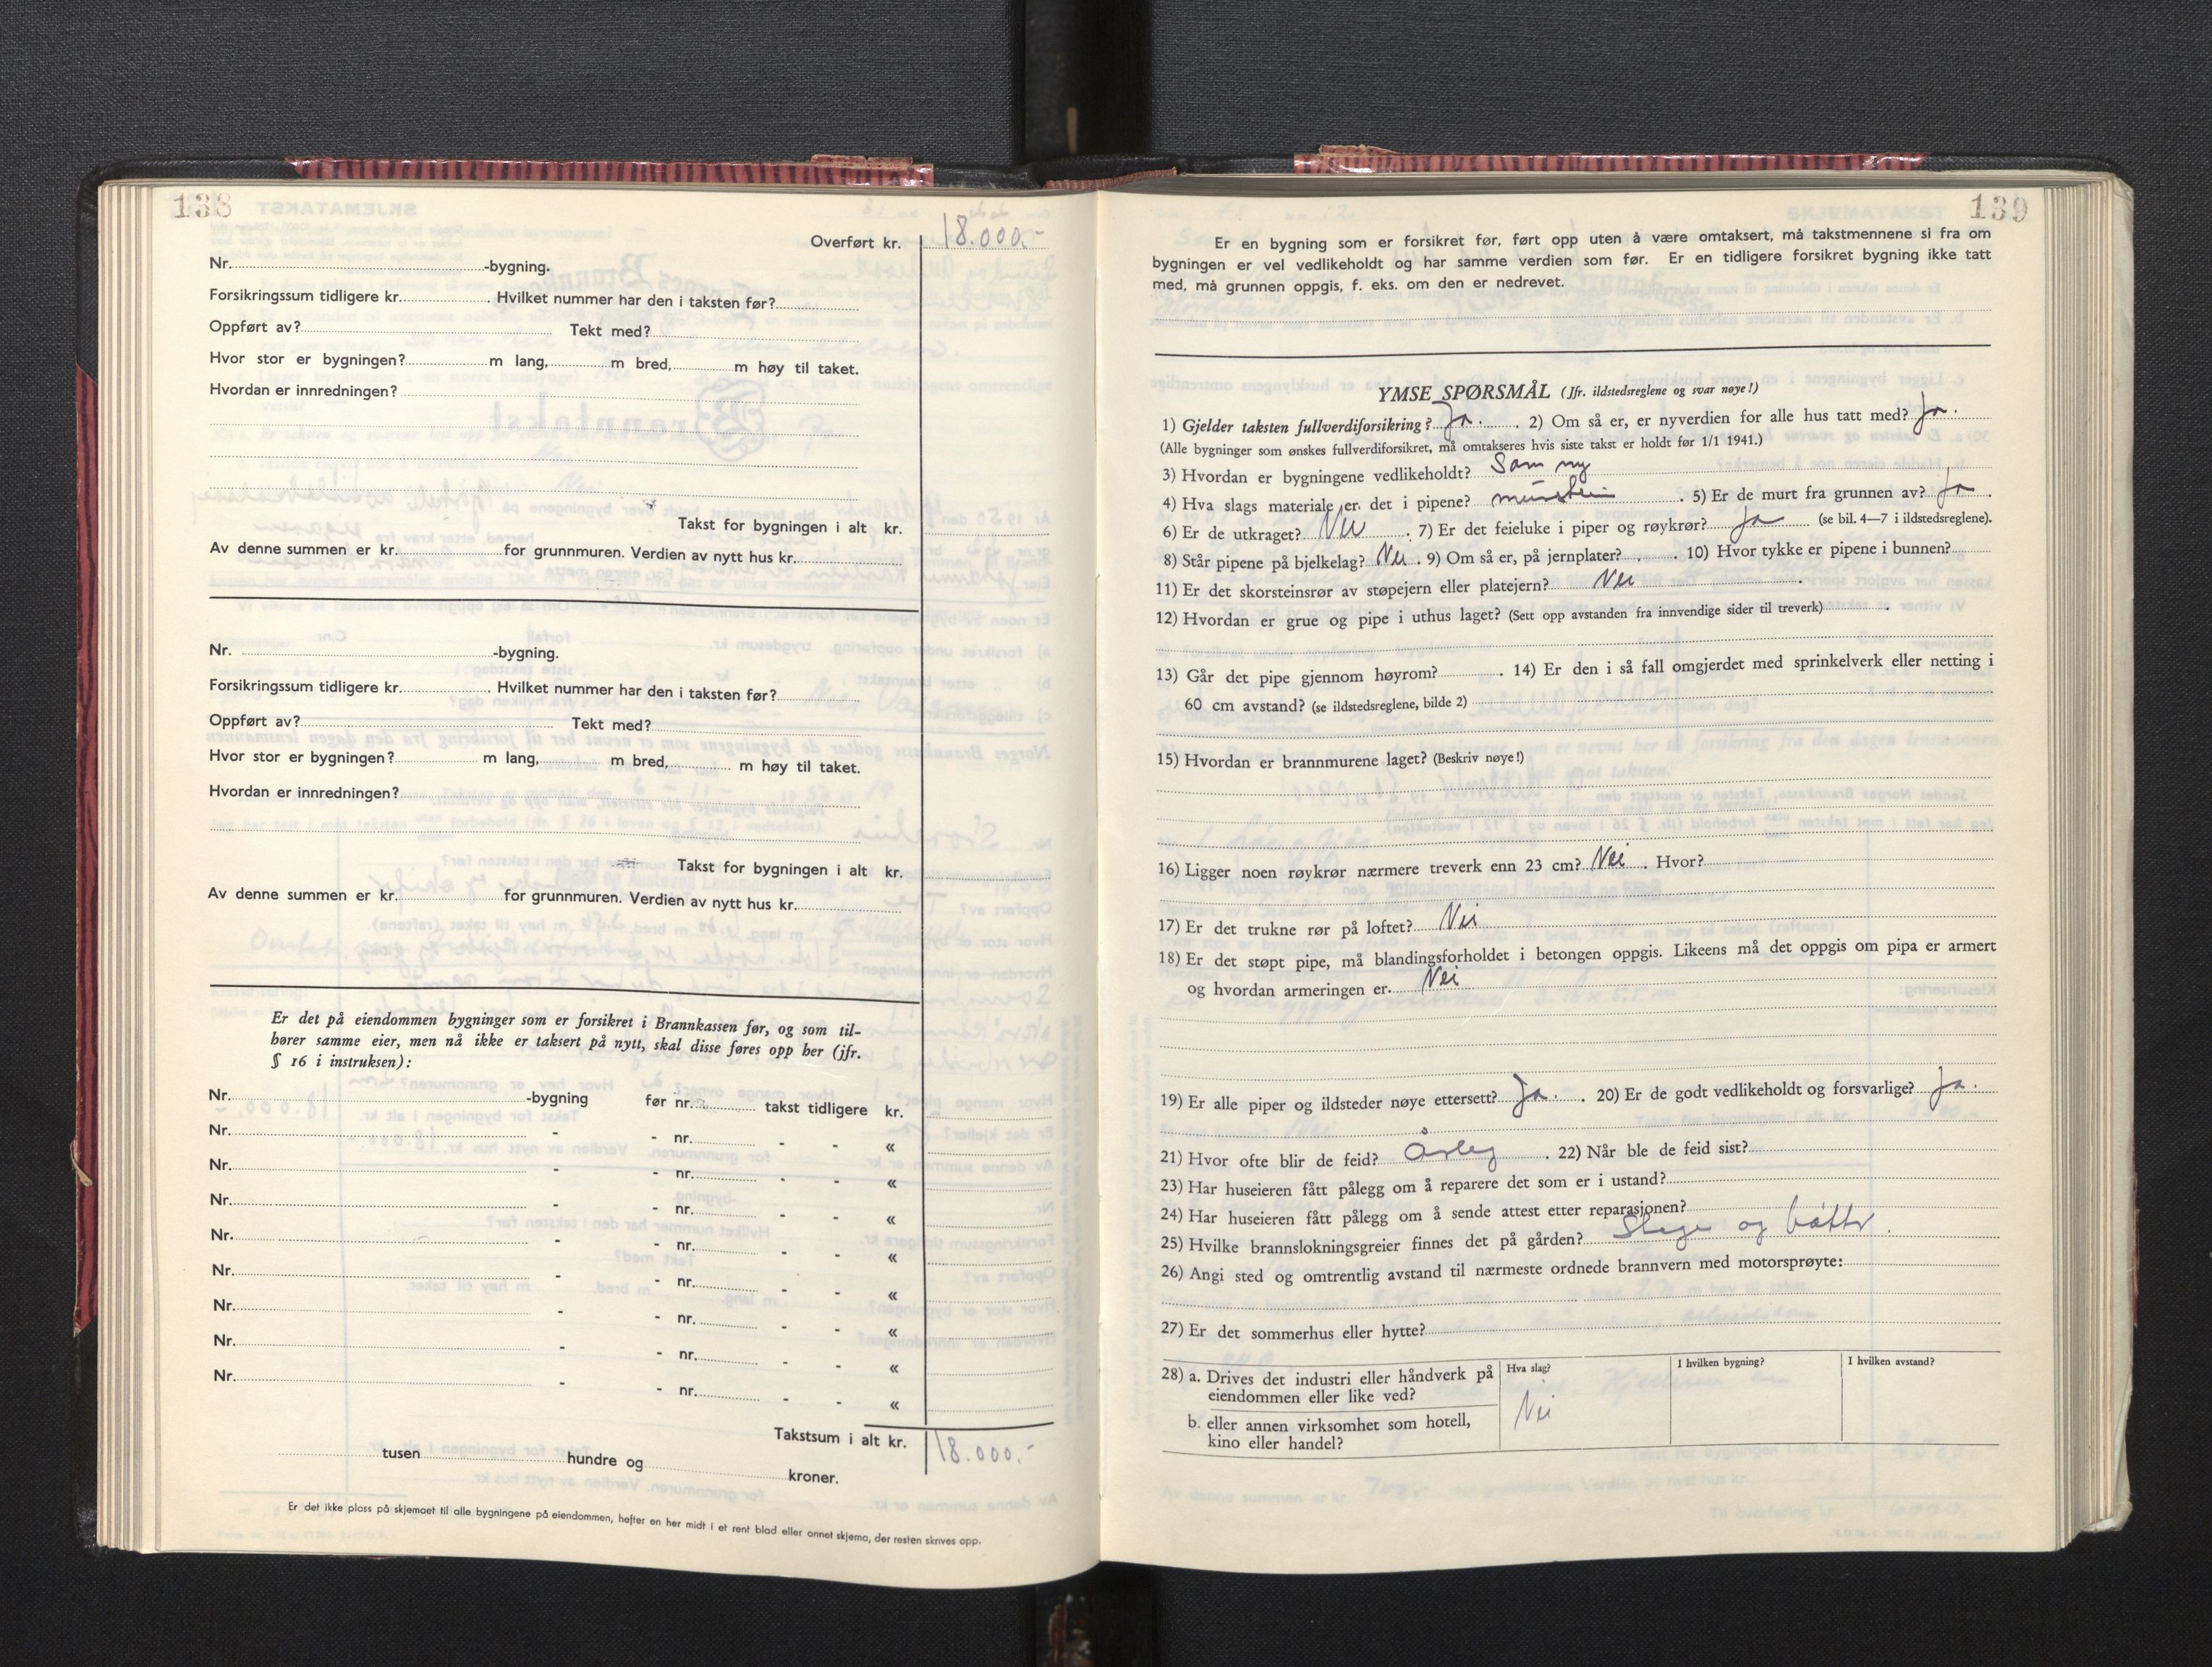 138
Overført kr. 18.000.-
Nr. -bygning.
Forsikringssum tidligere kr. . Hvilket nummer har den i taksten før?
Oppført av? Tekt med?
Hvor stor er bygningen? m lang, m bred, m høy til taket.
Hvordan er innredningen?
Takst for bygningen i alt kr.
Av denne summen er kr. for grunnmuren. Verdien av nytt hus kr.
Nr. -bygning.
Forsikringssum tidligere kr. . Hvilket nummer har den i taksten før?
Oppført av? Tekt med?
Hvor stor er bygningen? m lang, m bred, m høy til taket.
Hvordan er innredningen?
Takst for bygningen i alt kr.
Av denne summen er kr. for grunnmuren. Verdien av nytt hus kr.
Er det på eiendommen bygninger som er forsikret i Brannkassen før, og som til-
hører samme eier, men nå ikke er taksert på nytt, skal disse føres opp her (jfr.
§ 16 i instruksen):
Nr. -bygning før nr. takst tidligere kr.
Nr. - - nr. - - «
Nr. - - nr. - - «
Nr. - - nr. - - «
Nr. - - nr. - - «
Nr. - - nr. - - «
Nr. - - nr. - - «
Nr. - - nr. - - «
Nr. - - nr. - - «
Takstsum i alt kr. 18.000.-
tusen hundre og kroner.
Er det ikke plass på skjemaet til alle bygningene på eiendommen, hefter en her midt i et rent blad eller annet skjema, der resten skrives opp.
139
Er en bygning som er forsikret før, ført opp uten å være omtaksert, må takstmennene si fra om
bygningen er vel vedlikeholdt og har samme verdien som før. Er en tidligere forsikret bygning ikke tatt
med, må grunnen oppgis, f. eks. om den er nedrevet.
YMSE SPØRSMÅL (Jfr. ildstedsreglene og svar nøye!)
1) Gjelder taksten fullverdiforsikring? Ja. . 2) Om så er, er nyverdien for alle hus tatt med? Ja.
(Alle bygninger som ønskes fullverdiforsikret, må omtakseres hvis siste takst er holdt før 1/1 1941.)
3) Hvordan er bygningene vedlikeholdt? Som ny
4) Hva slags materiale er det i pipene? murstein . 5) Er de murt fra grunnen av? Ja .
6) Er de utkraget? Nei . 7) Er det feieluke i piper og røykrør? Ja (se bil. 4—7 i ildstedsreglene).
8) Står pipene på bjelkelag? Nei . 9) Om så er, på jernplater? . 10) Hvor tykke er pipene i bunnen?
11) Er det skorsteinsrør av støpejern eller platejern? Nei .
12) Hvordan er grue og pipe i uthus laget? (Sett opp avstanden fra innvendige sider til treverk) .
13) Går det pipe gjennom høyrom? . 14) Er den i så fall omgjerdet med sprinkelverk eller netting i
60 cm avstand? (se ildstedsreglene, bilde 2)
15) Hvordan er brannmurene laget? (Beskriv nøye!)
16) Ligger noen røykrør nærmere treverk enn 23 cm? Nei . Hvor?
17) Er det trukne rør på loftet? Nei
18) Er det støpt pipe, må blandingsforholdet i betongen oppgis. Likeens må det oppgis om pipa er armert
og hvordan armeringen er. Nei
19) Er alle piper og ildsteder nøye ettersett? Ja. . 20) Er de godt vedlikeholdt og forsvarlige? Ja.
21) Hvor ofte blir de feid? Årleg . 22) Når ble de feid sist?
23) Har huseieren fått pålegg om å reparere det som er i ustand?
24) Har huseieren fått pålegg om å sende attest etter reparasjonen?
25) Hvilke brannslokningsgreier finnes det på gården? Stege og bøtter .
26) Angi sted og omtrentlig avstand til nærmeste ordnede brannvern med motorsprøyte:
27) Er det sommerhus eller hytte?
28) a. Drives det industri eller håndverk på eiendommen eller like ved?
b. eller annen virksomhet som hotell, kino eller handel?
Hva slag? I hvilken bygning? I hvilken avstand?
Nei